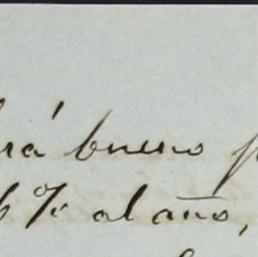 rá bueno p
6 % al año,